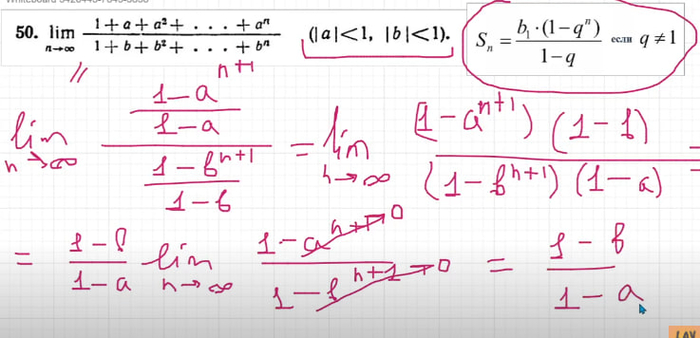 50. lim n→∞ (1+a+a²+ . . . +aⁿ)/(1+b+b²+ . . . +bⁿ) (|a|<1, |b|<1). Sₙ = b₁·(1−qⁿ)/(1−q) если q ≠ 1
lim n→∞ ((1−a^(n+1))/(1−a))/((1−b^(n+1))/(1−b)) = lim n→∞ ((1−a^(n+1))(1−b))/((1−b^(n+1))(1−a)) =
= (1−b)/(1−a) lim n→∞ (1−a^(n+1)→0)/(1−b^(n+1)→0) = (1−b)/(1−a)